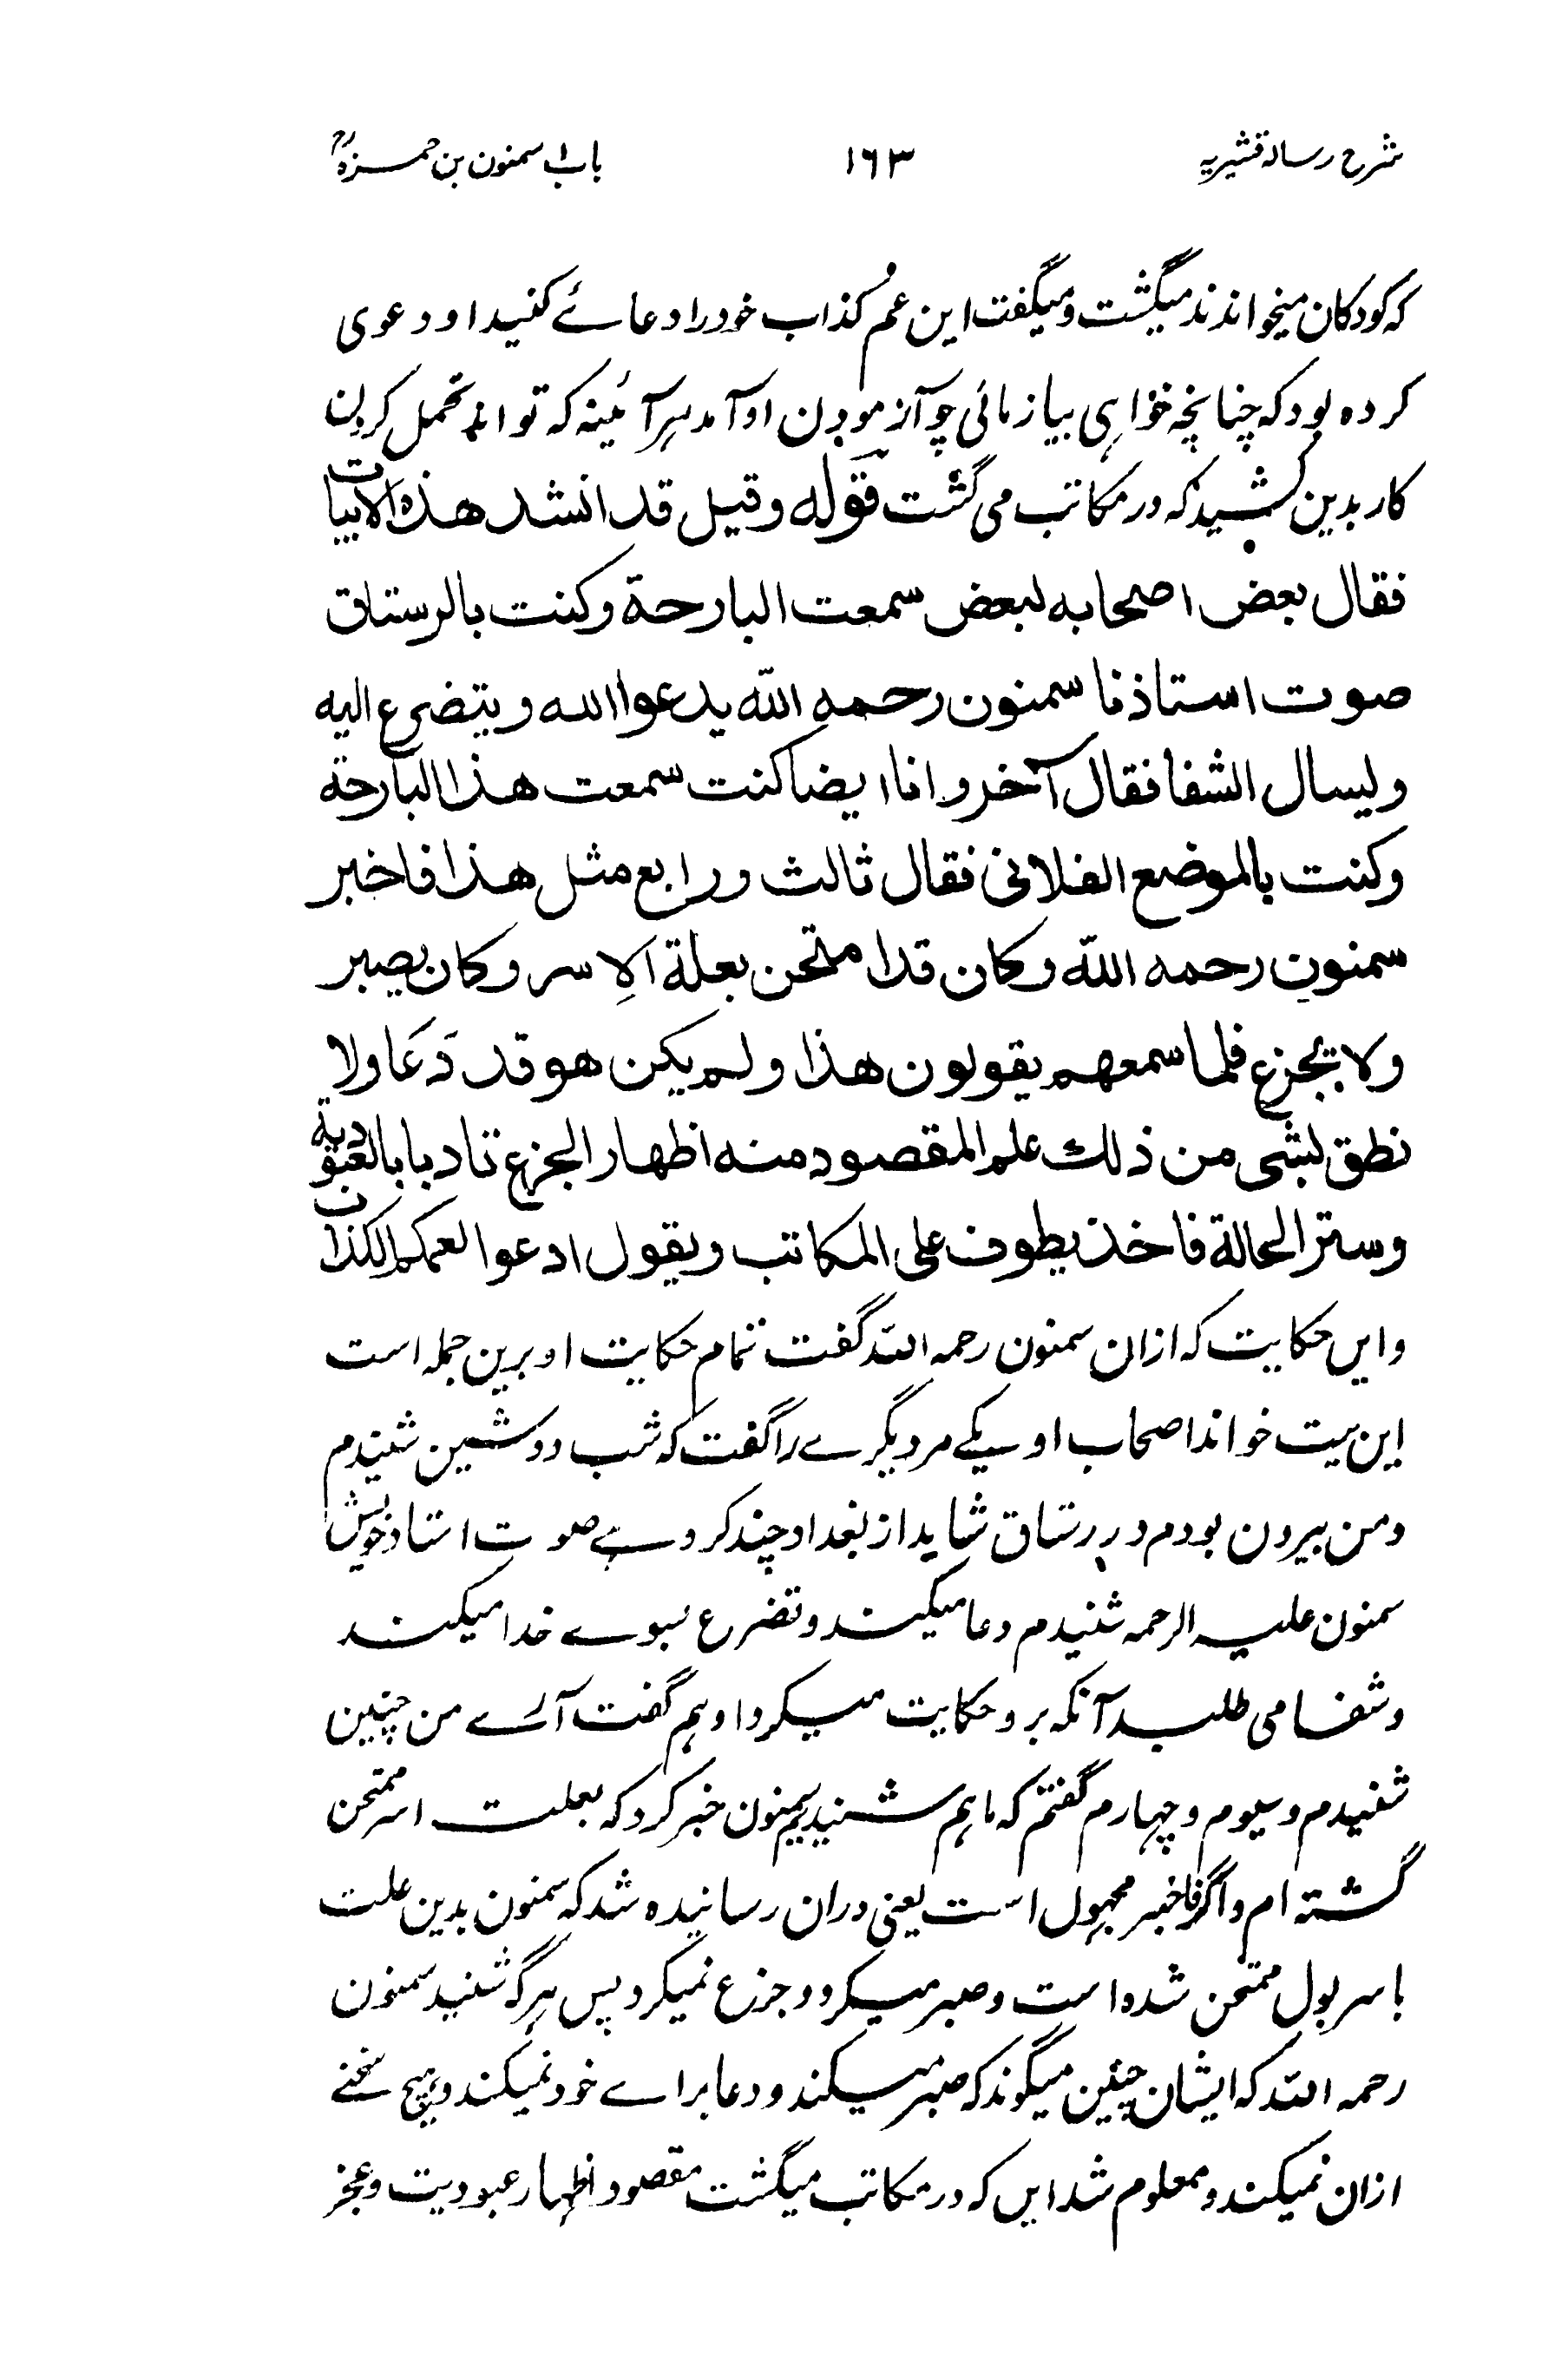 شرح رسالۀ قشیریه ١٦٣ باب ١ سمنون بن حمزه رح
که کودکان میخواندند میگشت و میگفت این عم کُذاب خود را دعائے کنید او دعوی
کرده بود که چنانچه خواهی بیازمائی چو آزمودن او آمد هر آئینه که تواند تحمل کردن
کار بدین کشید که در مکاتب می گشت قوله وقیل قد انشد هذه الابیات
فقال بعض اصحابه لبعض سمعت البارحة وکنت بالرستاق
صوت استاذنا سمنون رحمه الله یدعوا الله ویتضرع الیه
ویسال الشفا فقال آخر وانا ایضا کنت سمعت هذا البارحة
وکنت بالموضع الفلانی فقال ثالث ورابع مثل هذا فاخبر
سمنون رحمه الله وکان قد امتحن بعلة الاسر وکان یصبر
ولا یجزع فلما سمعهم یقولون هذا ولم یکن هو قد دَعَا ولا
نطق بشی من ذلك علم المقصود منه اظهار الجزع تادبا بالعبودیة
وستر الحالة فاخذ یطوف علی المکاتب ویقول ادعوا لعمکم الکذاب
وایں حکایت که ازان سمنون رحمه الله گفت تمام حکایت او برین جمله است
این بیت خواند اصحاب او یکے مر دیگرے را گفت که شب دوشین شنیدم
ومن بیرون بودم در رستاق شاید از بغداد چند کروہے صوت استاذ خویش
سمنون علیه الرحمه شنیدم دعا میکند و تضرع بسوے خدا میکند
وشفا می طلبد آنکه برو حکایت میکرد او هم گفت آرے من چنین
شنیدم و سیوم و چهارم گفتم که ما هم شنیدیم سمنون خبر کرد که بعلت اسر ممتحن
گشته ام و اگر فاخبر مجهول است یعنی دران رسانیده شد که سمنون بدین علت
باسر بول ممتحن شده است و صبر میکرد و جزع نمیکرد پس هرگه شنید سمنون
رحمه الله که ایشان چنین میگوند که صبر میکند و دعا براے خود نمیکند و هیچ سخنے
ازان نمیکند و معلوم شد ایں که در مکاتب میگشت مقصود اظهار عبودیت و عجز